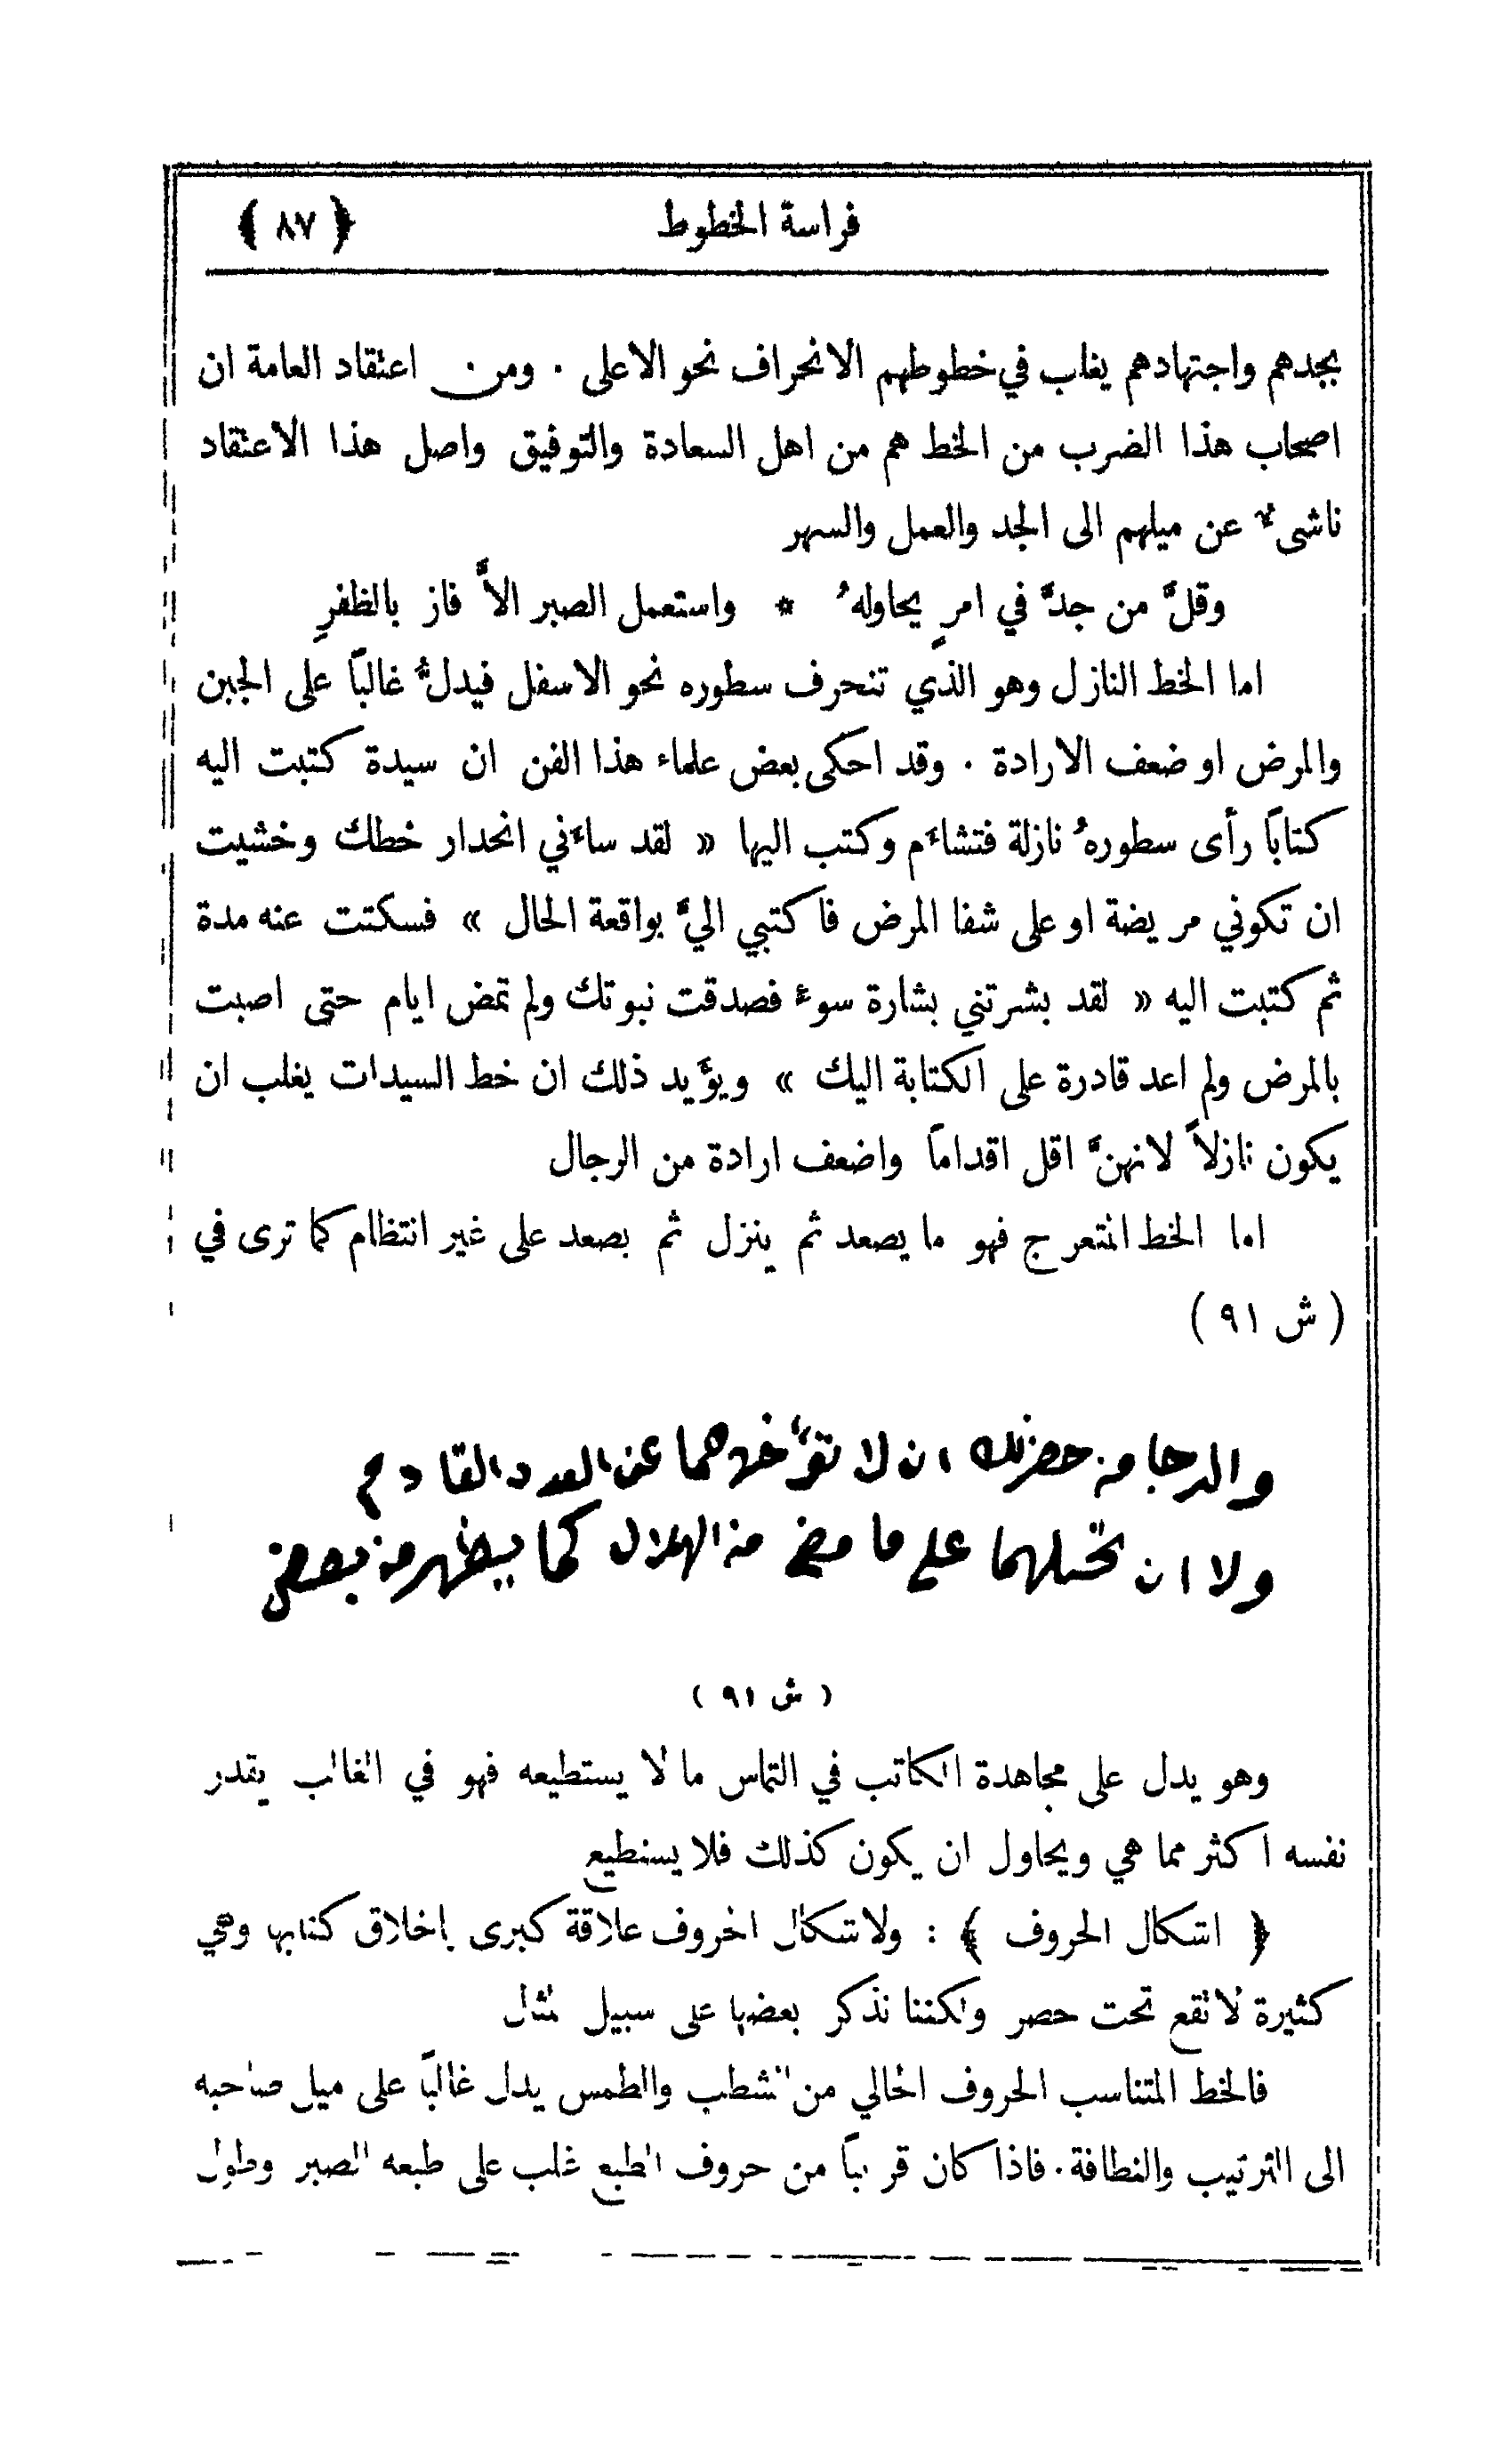 فراسة الخطوط ﴿ ٨٧ ﴾
بجدهم واجتهادهم يغلب في خطوطهم الانحراف نحو الاعلى ٠ ومن اعتقاد العامة ان
اصحاب هذا الضرب من الخط هم من اهل السعادة والتوفيق واصل هذا الاعتقاد
ناشىء عن ميلهم الى الجد والعمل والسهر
وقلَّ من جدَّ في امرٍ يحاولهُ * واستعمل الصبر الاَّ فاز بالظفرِ
اما الخط النازل وهو الذي تنحرف سطوره نحو الاسفل فيدلُّ غالبًا على الجبن
والمرض او ضعف الارادة ٠ وقد احكى بعض علماء هذا الفن ان سيدة كتبت اليه
كتابًا رأى سطورهُ نازلة فتشاءَم وكتب اليها « لقد ساءَني انحدار خطك وخشيت
ان تكوني مريضة او على شفا المرض فاكتبي اليَّ بواقعة الحال » فسكتت عنه مدة
ثم كتبت اليه « لقد بشرتني بشارة سوء فصدقت نبوتك ولم تمض ايام حتى اصبت
بالمرض ولم اعد قادرة على الكتابة اليك » ويؤَيد ذلك ان خط السيدات يغلب ان
يكون نازلاً لانهنَّ اقل اقدامًا واضعف ارادة من الرجال
اما الخط المتعرج فهو ما يصعد ثم ينزل ثم يصعد على غير انتظام كما ترى في
( ش ٩١ )
والرجا من حضرتك ان لا تؤَخرهما عن العدد القادم
ولا ان تحملهما على ما مضى من الهلال كما يظهر من بعض
( ش ٩١ )
وهو يدل على مجاهدة الكاتب في التماس ما لا يستطيعه فهو في الغالب يقدر
نفسه اكثر مما هي ويحاول ان يكون كذلك فلا يستطيع
﴿ اشكال الحروف ﴾ : ولاشكال الحروف علاقة كبرى باخلاق كتابها وهي
كثيرة لا تقع تحت حصر ولكننا نذكر بعضها على سبيل المثال
فالخط المتناسب الحروف الخالي من الشطب والطمس يدل غالبًا على ميل صاحبه
الى الترتيب والنظافة ٠ فاذا كان قريبًا من حروف الطبع غلب على طبعه الصبر وطول